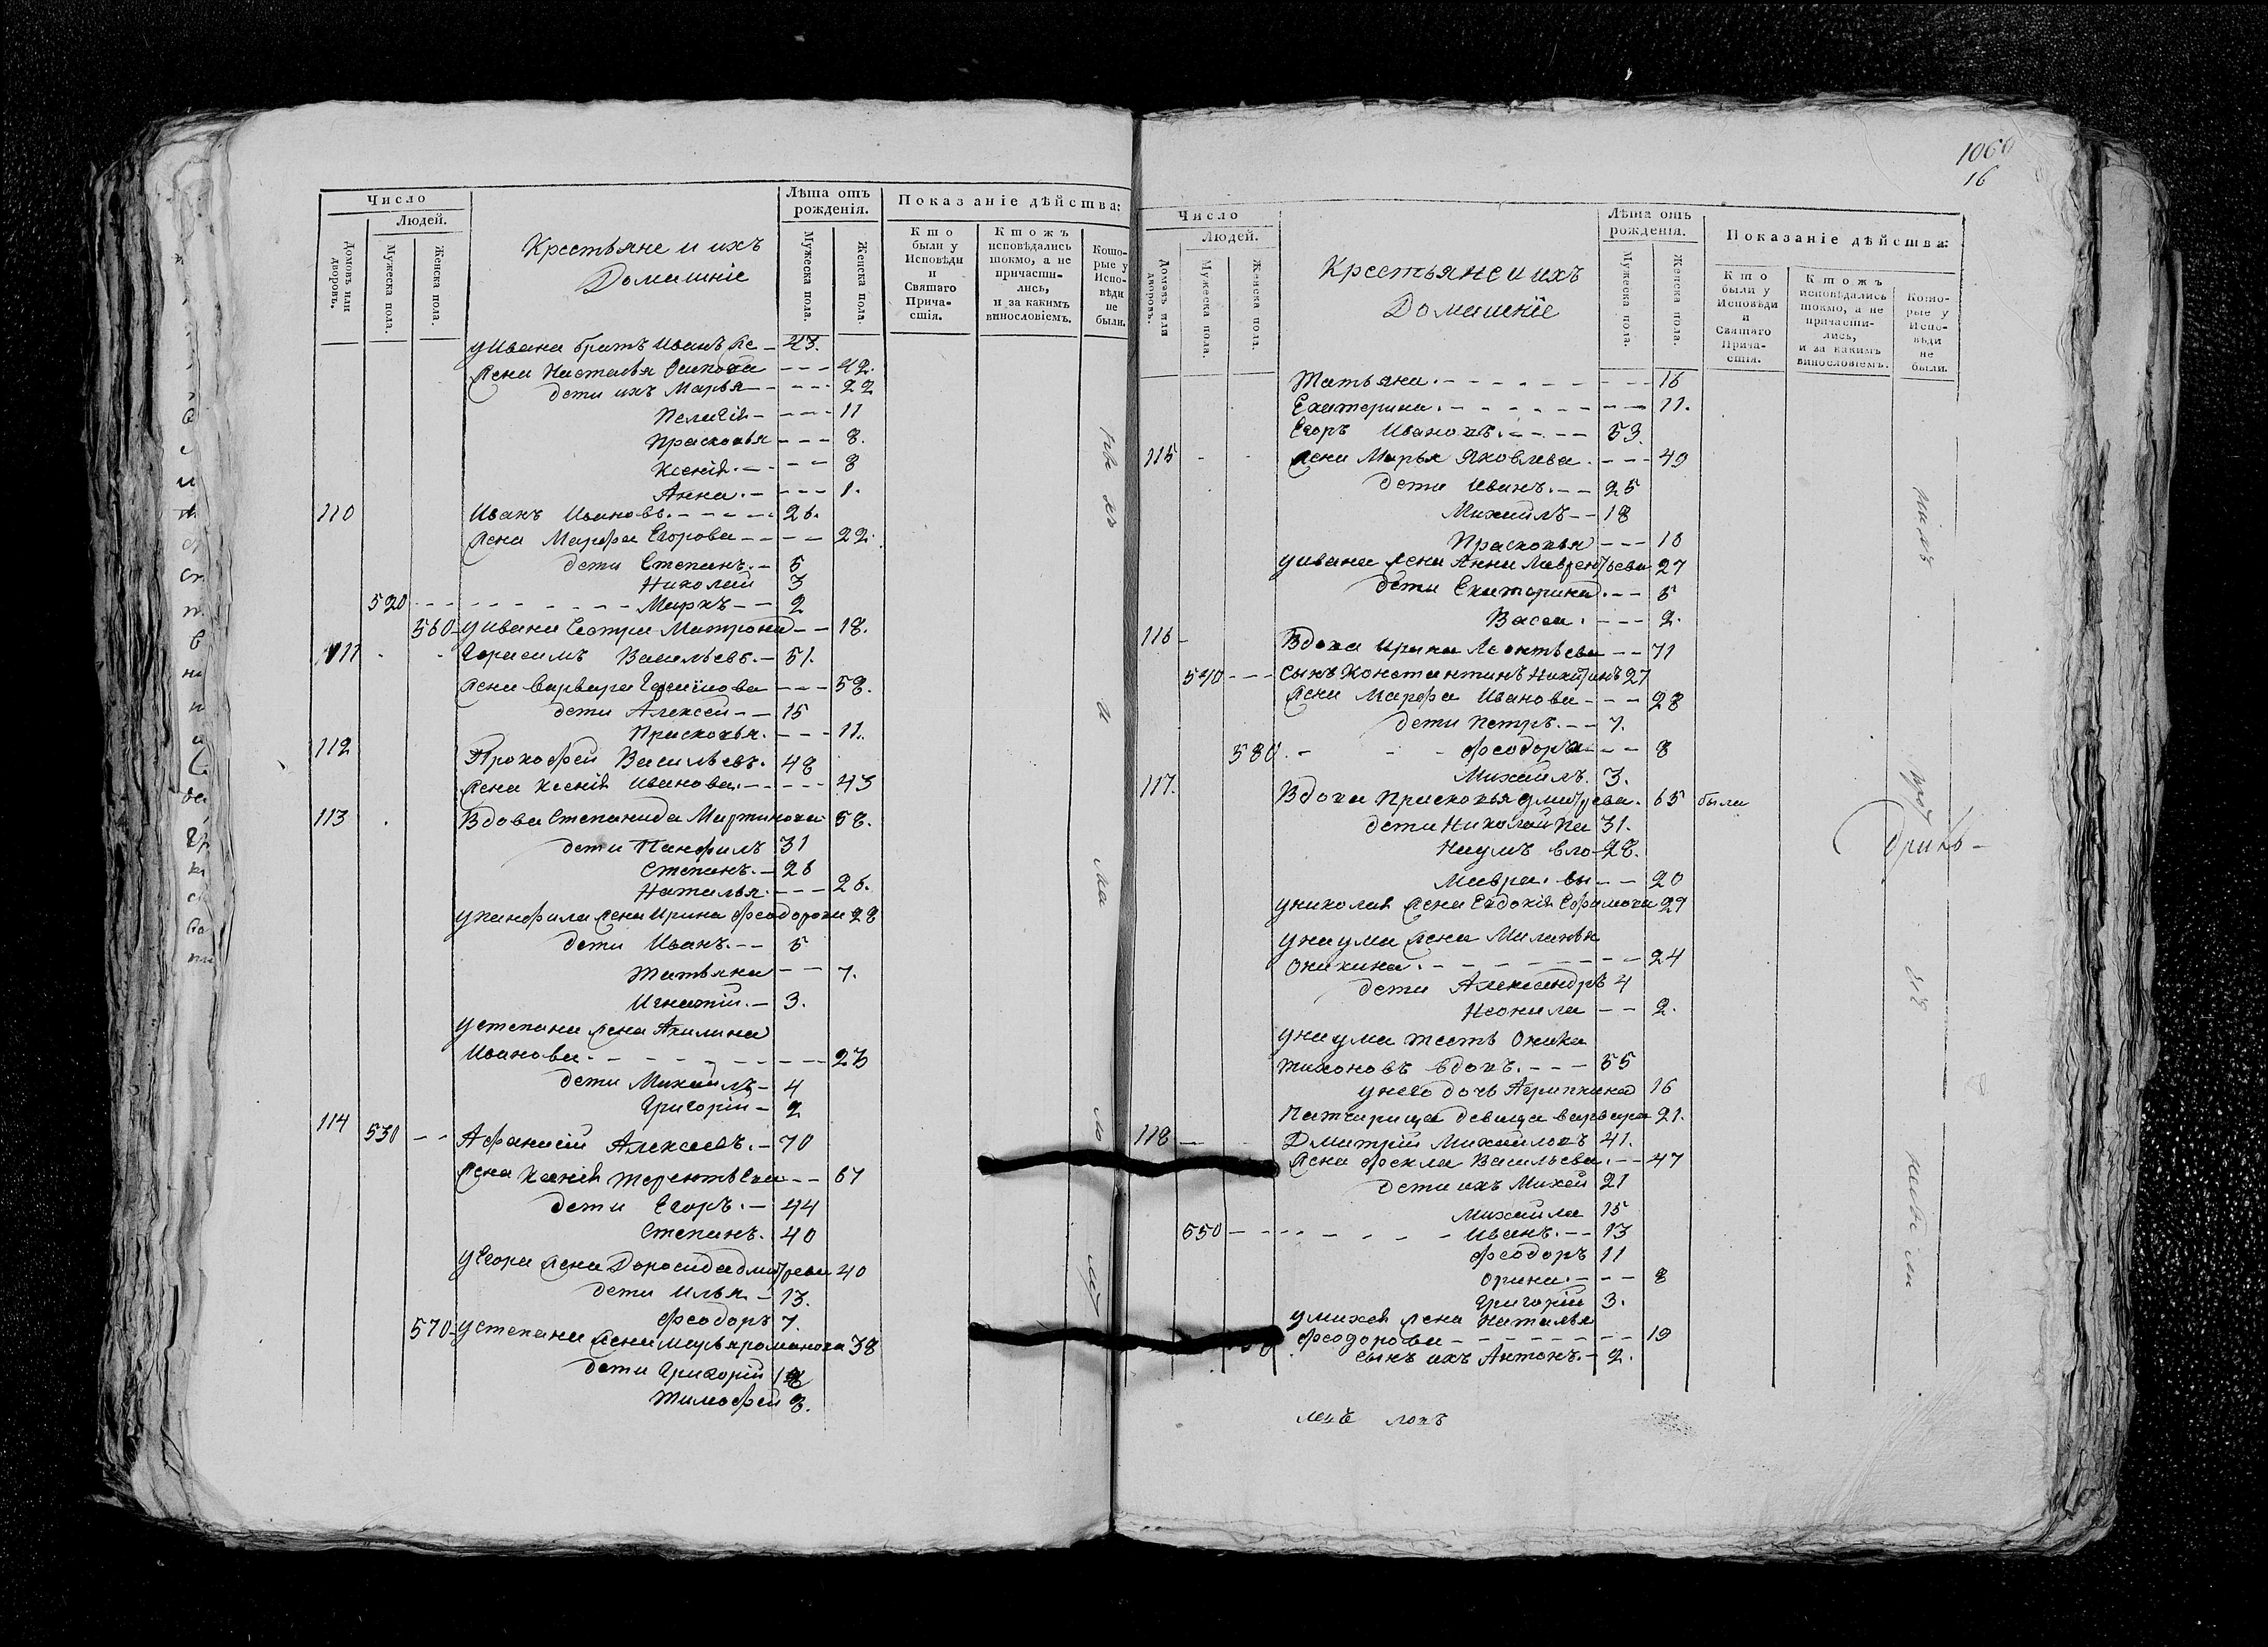 Число
Людей.
Домовъ или дворовъ.
Мужеска пола.
Женска пола.
Крестьяне и ихъ
Домашніе
Лѣта отъ рожденія.
Мужеска пола.
Женска пола.
Показаніе дѣйства:
Кто были у Исповѣди и Святаго Причастія.
Ктожъ исповѣдались токмо, а не причастились, и за какимъ винословіемъ.
Которые у Исповѣди не были.
у Ивана братъ Иванъ 43.
жена Наталья 42.
дети ихъ Марья 22
Пелагія 11
Прасковья 8.
Ксенія 8
Анна 1.
110 Иванъ Ивановъ 26.
жена Марфа Егорова 22.
дети Степанъ 5
Николай 3
520 Маркъ 2
560 у Ивана Сестра Матрона 18.
111 Герасимъ Васильевъ 51.
жена Варвара 58.
дети Алексей 15
Прасковья 11.
112 Прокофей Васильевъ 48
жена Ксенія Иванова 43
113 Вдова Степанида Мартинова 58.
дети Панфилъ 31
Степанъ 26
Наталья 26.
у панфила жена Ирина Феодорова 28
дети Иванъ 5
Татьяна 7.
Игнатій 3.
у степана жена Акилина
Иванова 23
дети Михаилъ 4
Григорій 2
114 530 Афанасій Алексеевъ 70
жена Ксенія Терентьева 67
дети Егоръ 44
Степанъ 40
у Егора жена Доросида дмитрева 40
дети Илья 13.
Феодоръ 7.
570 у степана жена марья романова 38
дети Григорій
Тимофей 8.
1060
16
Число
Людей.
Домовъ или дворовъ.
Мужеска пола.
Женска пола.
Крестьяне и ихъ
Домашніе
Лѣта отъ рожденія.
Мужеска пола.
Женска пола.
Показаніе дѣйства:
Кто были у Исповѣди и Святаго Причастія.
Ктожъ исповѣдались токмо, а не причастились, и за какимъ винословіемъ.
Которые у Исповѣди не были.
Татьяна 16
Екатерина 11.
Егоръ Ивановъ 53.
115 жена Марья Яковлева 49
дети Иванъ 25
Михаилъ 18
Прасковья 18
у ивана жена Анна Лаврентьева 27
дети Екатерина 5
Васса 2.
116 Вдова Ирина Леонтьева 71
540 сынъ Константинъ Никитинъ 27
жена Марфа Иванова 28
дети Петръ 7.
580 Феодора 8
Михаилъ 3.
117. Вдова Прасковья дмитрева 65 были
дети Николай Па 31.
Наумъ вло 28.
Мавра вы 20
у николая жена Евдокія Ефимова 29
у наума жена Миланья
Оникина 24
дети Александръ 4
Неонила 2.
у наума тесть Оника
Тихоновъ вдовъ 55
у него дочь Агрипкина 16
девица варвара 21.
118 Дмитрій Михаиловъ 41.
жена Фекла Васильева 47
дети ихъ Михей 21
Михаила 15
550 Иванъ 13
Феодоръ 11
Орина 8
Григорій 3.
у михея жена Наталья
Феодорова 19
сынъ ихъ Антонъ 2.